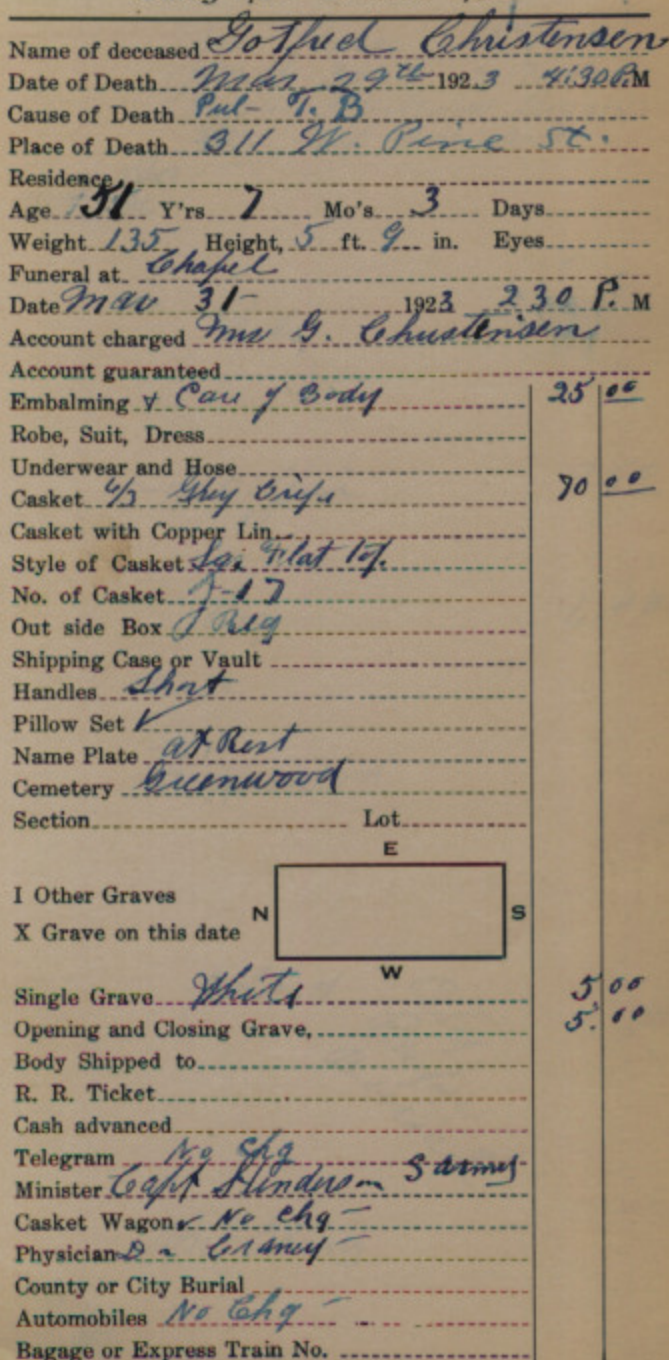 Name of deceased Gotfred Christensen
Date of Death Mar 29th 1923 4:30 P.M
Cause of Death Pul- T.B
Place of Death 311 W. Pine St.
Residence
Age 51 Y'rs 7 Mo's 3 Days
Weight 135 Height, 5 ft. 9 in. Eyes
Funeral at Chapel
Date Mar 31- 1923 2 30 P. M
Account charged Mrs G. Christensen
Account guaranteed
Embalming & Care of Body 25 00
Robe, Suit, Dress
Underwear and Hose
Casket 6/3 Grey 70 00
Casket with Copper Lin.
Style of Casket Sq. Flat top.
No. of Casket
Out side Box
Shipping Case or Vault
Handles Short
Pillow Set ✓
Name Plate at Rest
Cemetery Greenwood
Section Lot
E
I Other Graves
N S
X Grave on this date
W
Single Grave 5 00
Opening and Closing Grave, 5. 00
Body Shipped to
R. R. Ticket
Cash advanced
Telegram No Chg
Minister Capt S Army
Casket Wagon ✓ No Chg -
Physician Dr
County or City Burial
Automobiles No Chg -
Bagage or Express Train No.